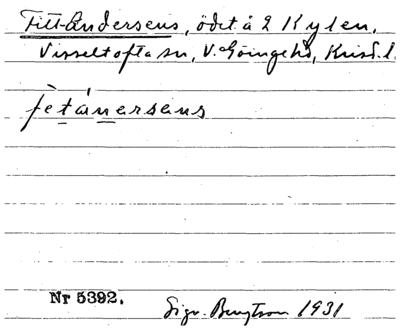 Fitt-Andersens, ödet. å 2 Kylen,
Visseltofta sn, V. Göingehd, Krisd. l.
fètánersens
Nr 5392.
Sigv. Bengtson 1931